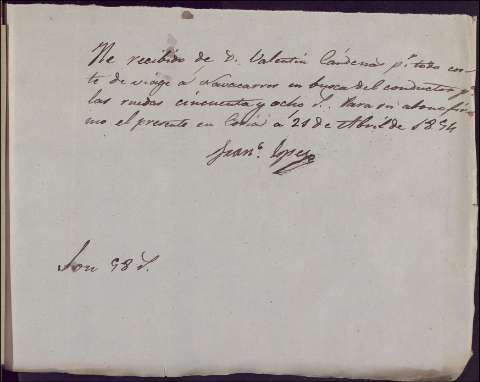 He recibido de D. Valentin Cárdenas pr. todo cos-
te de viage á Navacarros en busca del conductor pa
las ruedas cincuenta y ocho S. Para su abono fir-
mo el presente en Coria á 21 de Abril de 1854
Franco. Lopez
Son 58 S.